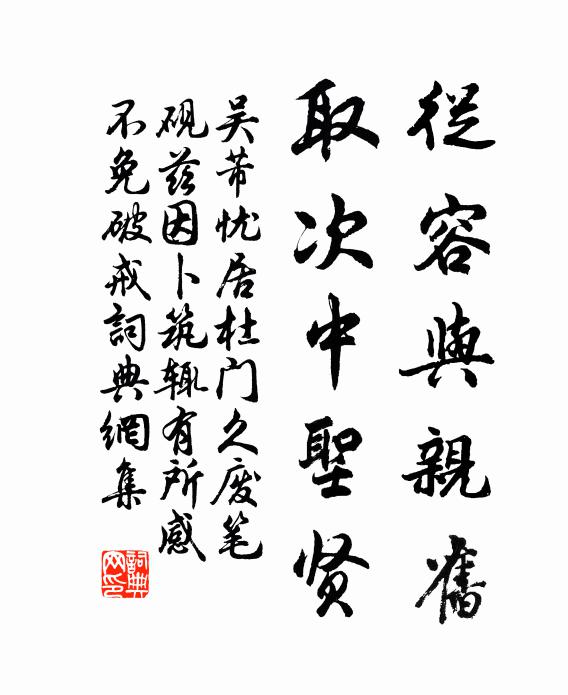 從容與親舊
取次中聖贤
吴芾忧居杜门久废笔
砚兹因卜筑辄有所感
不免破戒詞典網集
詞典
网印